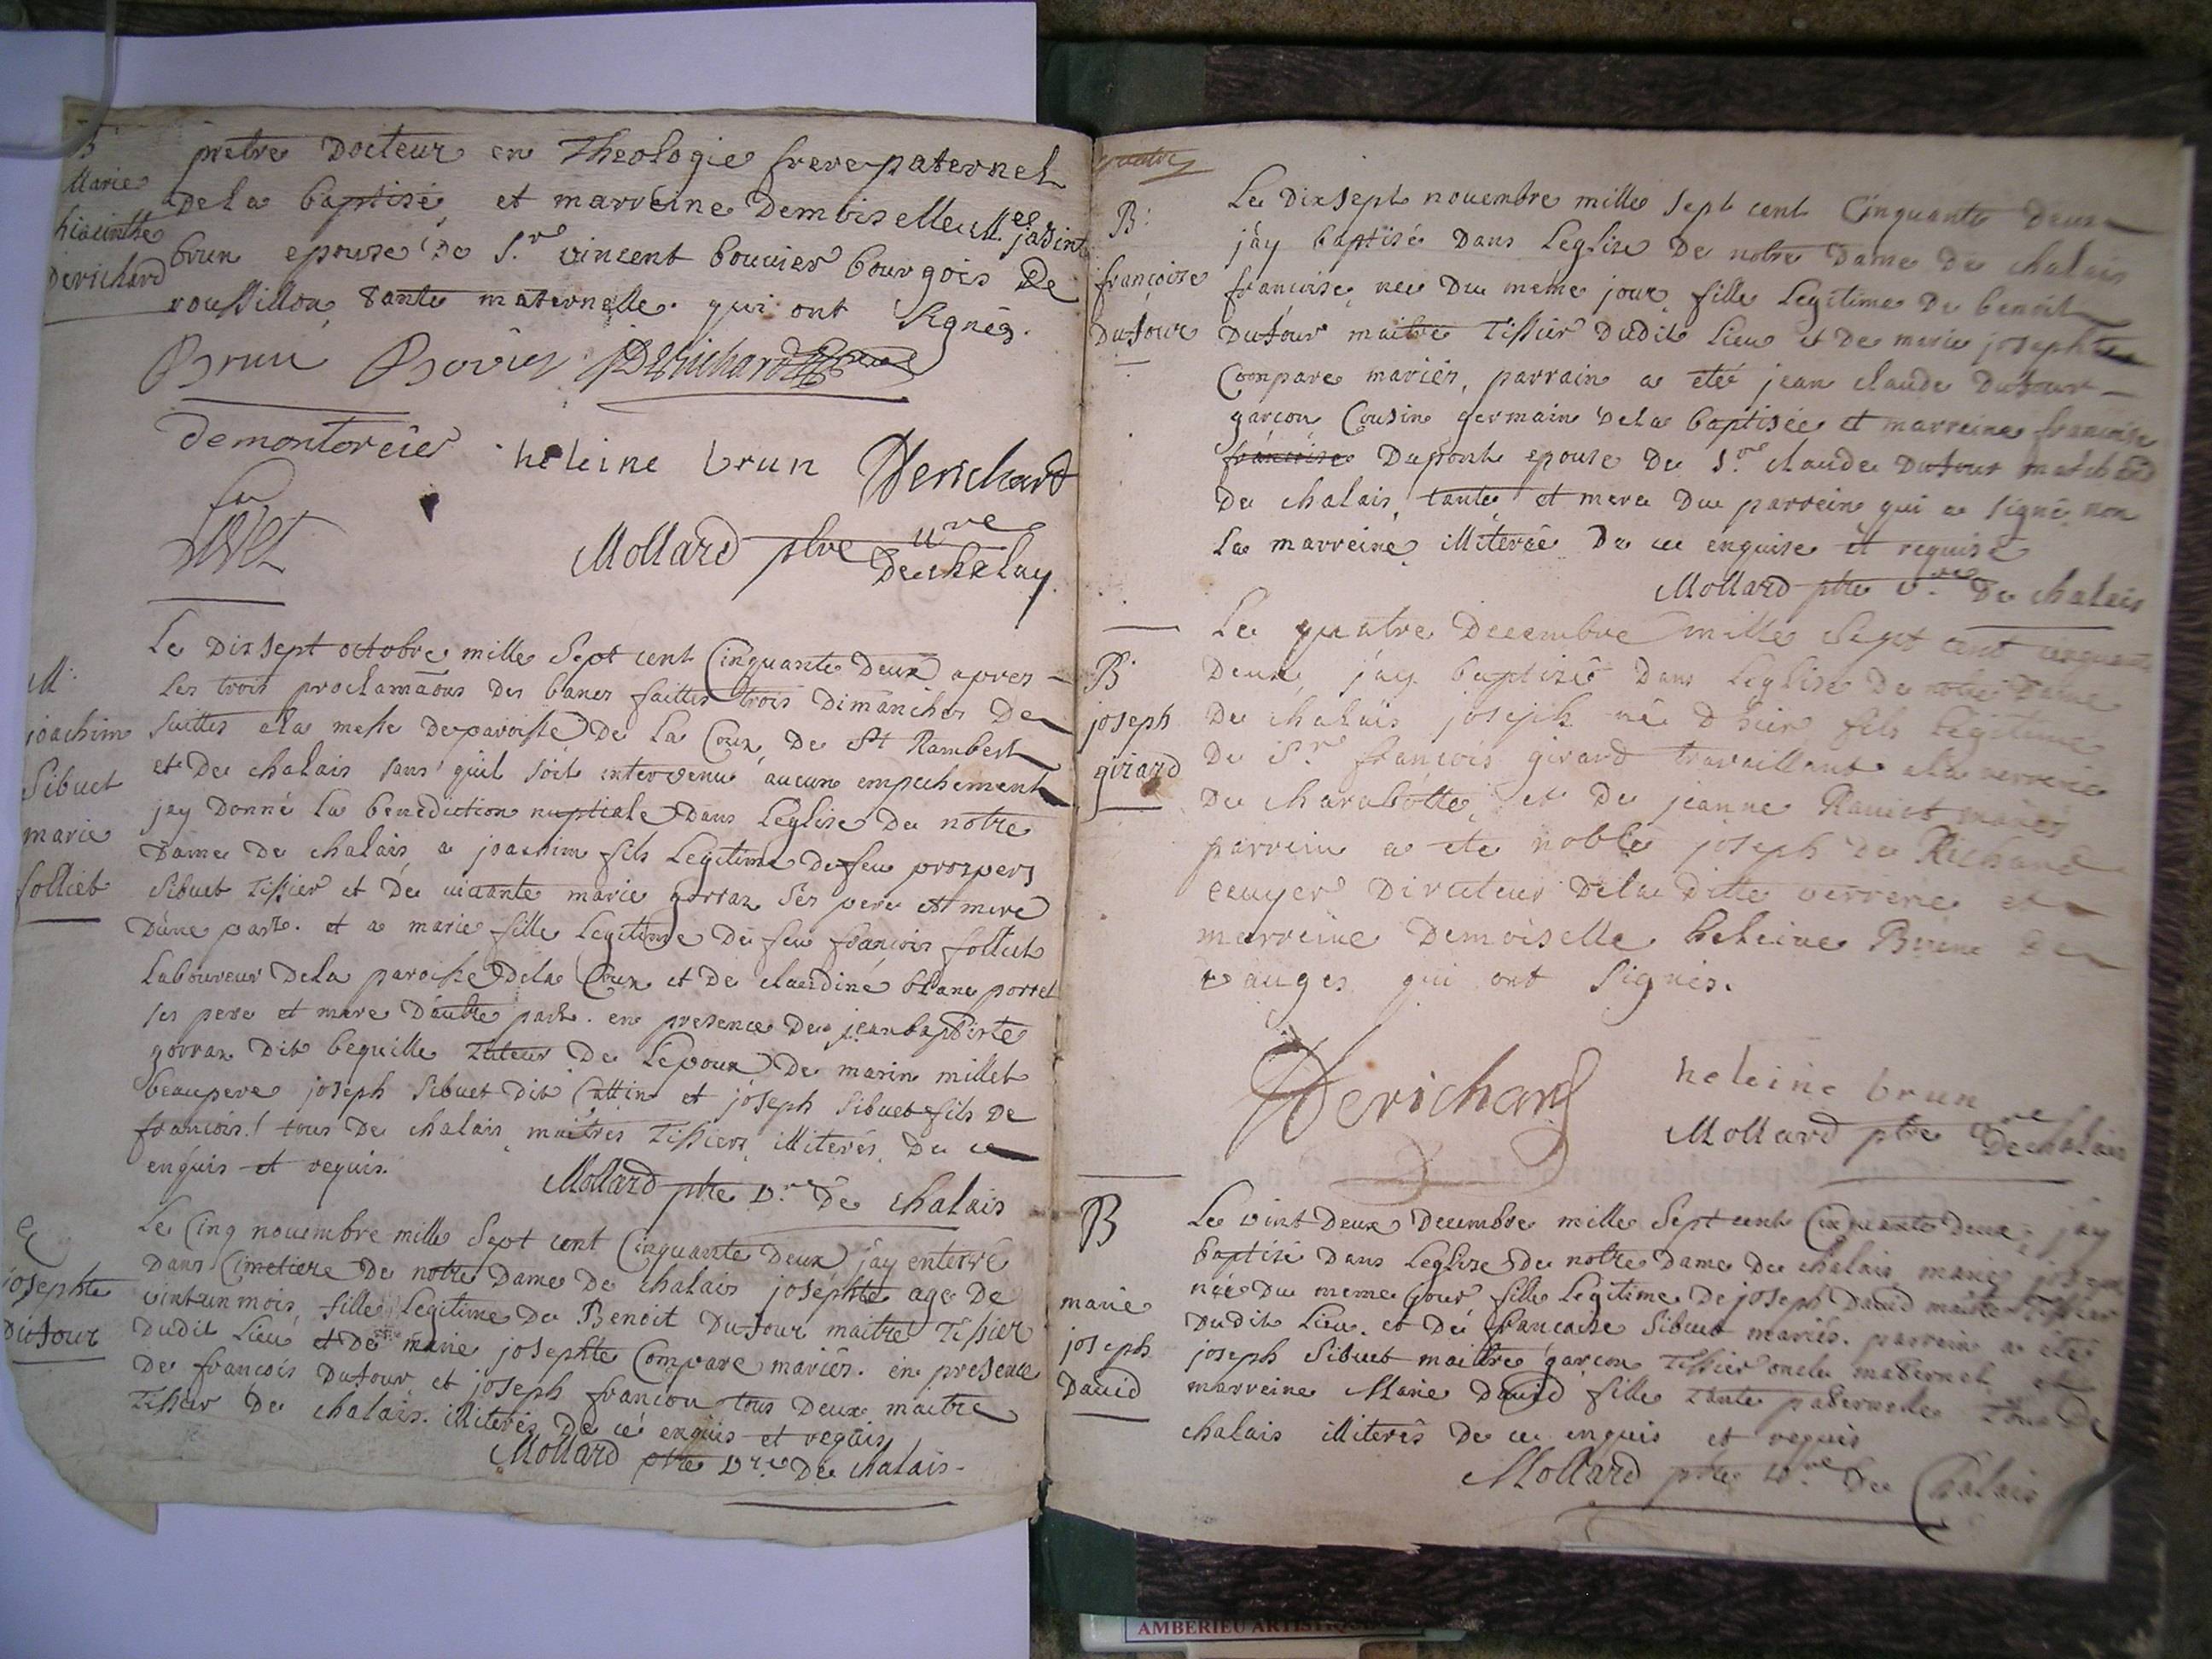 B
Marie
hiacinthe
Derichard
pretre Docteur en Theologie frere paternel
De la baptisé et marréine Demoiselle Mee jasinte
brun epouse de S.re vincent bouvier bourgois De
roussillon, tante maternelle qui ont signés.
Brun Bovier Derichard
demontorcier heleine brun Derichard
Mollard ptre vre
De chalay
M.
joachim
Sibuet
marie
folliet
Le Dixsept octobre mille Sept cent Cinquante Deux apres
Les trois proclamãons Des bancs faittes trois Dimanches De
suittes a la messe De paroisse De La Coux, De St Rambert
et De chalais sans qu'il soit intervenu aucun empechement
jay Donné La benediction nuptiale Dans Leglise De notre
Dame De chalais a joachim fils Legitime De feu prospers
Sibuet Tissier et De vivante marie gorraz ses pere et mere
D'une part. et a marie fille Legitime De feu françois folliet
Laboureur De la paroisse De la Coux et De claudine blanc porret
ses pere et mere D'autre part. en presence De jean baptiste
gorraz Dit bequille Tuteur De Lepoux De marin millet
beaupere joseph Sibuet Dit Cattin et joseph Sibuet fils De
françois! tous De chalais maitres Tissiers illiterés De ce
enquis et requis.
Mollard ptre v.re De chalais
E
josephte
Dufour
Le Cinq novembre mille Sept cent Cinquante Deux jay enterré
Dans Cimetiere De notre Dame De chalais josephte age De
vint un mois, fille Legitime De Benoit Dufour maitre Tissier
Dudit Lieu et De marie josephte Compare mariés. en presence
De françois Dufour et joseph françon tous Deux maitre
Tissier De chalais. illiterés De ce enquis et requis
Mollard ptre vre De chalais.
quatre
B.
françoise
Dufour
Le Dixsept novembre mille sept cent Cinquante Deux
jáy baptisé Dans Leglise De notre Dame De chalais
françoise, née Du meme jour fille Legitime De benoit
Dufour maitre Tissier Dudit Lieu et De marie josephte
Compare mariés, parrain a eté jean claude Dufour
garçon Cousin germain De la baptisée et marreine françoise
françoise Dupont epouse De S.re claude Dufour marchand
De chalais, tante et mere Du parrein qui a signé non
La marreine illiterée De ce enquise et requise
Mollard ptre v.re De chalais
B.
joseph
girard
Le quatre Decembre mille Sept cent cinquante
Deux, jay baptisé Dans Leglise De notre Dame
De chalais joseph né D'hier fils Legitime
De S.re françois girard travaillant a la verrerie
De charabotte, et De jeanne Raviet mariés
parrein a ete noble joseph De Richard
ecuyer Directeur De la Ditte verrerie et
marreine Demoiselle heleine Brune De
vauges qui ont signés.
Derichard heleine brun
Mollard ptre vre
De chalais
B
marie
joseph
David
Le vint Deux Decembre mille Sept cent Cinquante Deux, jay
baptisé Dans Leglise De notre Dame De chalais marie joseph
née Du meme jour fille Legitime De joseph David maitre Tissier
Dudit Lieu. et De françoise Sibuet mariés. parrein a été
joseph Sibuet maitre garçon Tissier oncle maternel et
marreine Marie David fille tante paternelle tous De
chalais illiterés De ce enquis et requis
Mollard ptre v.re De Chalais
AMBERIEU ARTISTIQUE